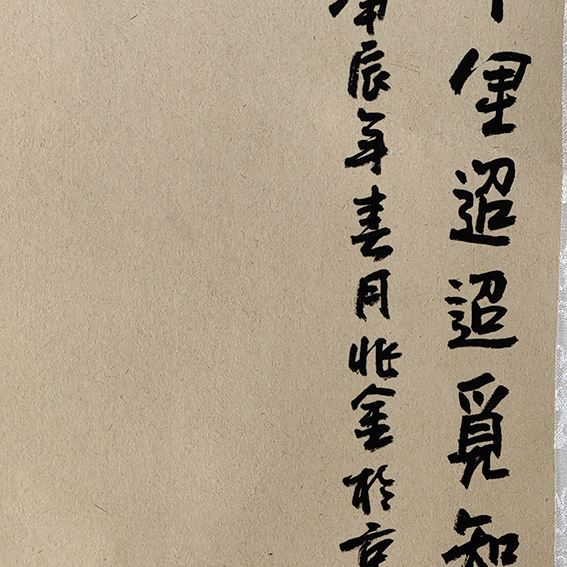 里迢迢覓知
庚辰年春月兆金於京